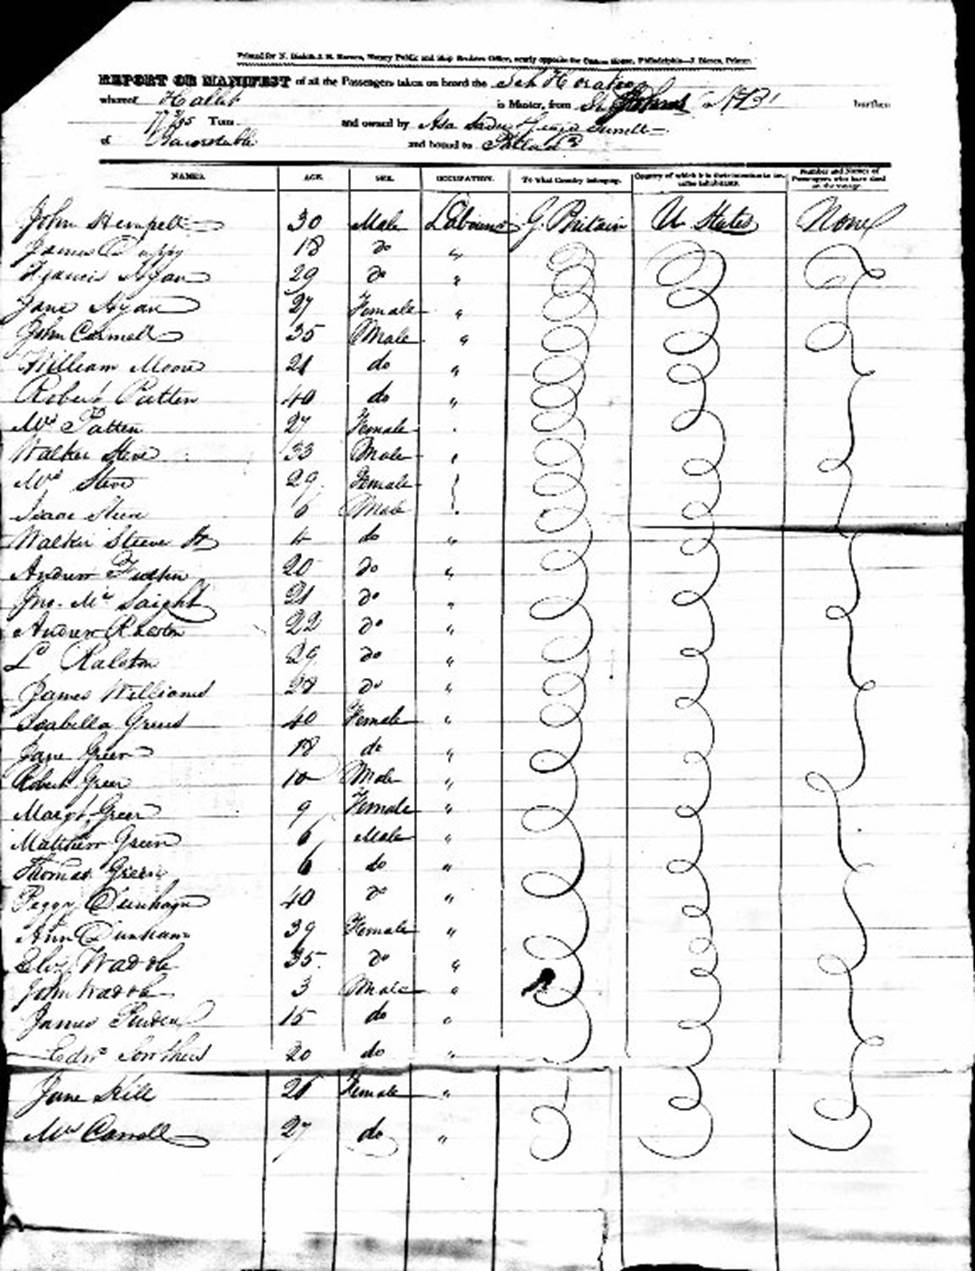 Printed for N. Dickinson & H. Horner, Notary Public and Ship Brokers Office, nearly opposite the Custom House, Philadelphia
REPORT OR MANIFEST of all the Passengers taken on board the Sch Horatio
whereof Hallet is Master, from St Johns NB burthen
Tons and owned by Asa
of Barnstable and bound to Philad
NAMES. AGE. SEX. OCCUPATION. To what Country belonging. Country of which it is their intention to become inhabitants. Number and Names of Passengers who have died on the voyage.
John Hempell 30 Male Labourer G. Britain U States None
James 18 do "
Francis Ryan 29 do "
Jane Ryan 27 Female "
John Carmell 35 Male "
William Moore 21 do "
Robert Patten 40 do "
Mrs Patten 27 Female "
Walker Steve 33 Male "
Mrs Steve 29 Female "
Isaac Steve 6 Male "
Walker Steeve Jr 4 do "
Andrew 20 do "
Jno. Mc 21 do "
Andrew Ralston 22 do "
L Ralston 29 do "
James Williams 28 do "
Isabella Green 40 Female "
Jane Green 18 do "
Robert Green 10 Male "
Margt Green 9 Female "
Matthew Green 6 Male "
Thomas Green 6 do "
Peggy Dunham 40 do "
Ann Dunham 39 Female "
Eliz Waddle 35 do "
John Waddle 3 Male "
James 15 do "
Edw 20 do "
Jane Hill 21 Female "
Mrs Carroll 27 do "